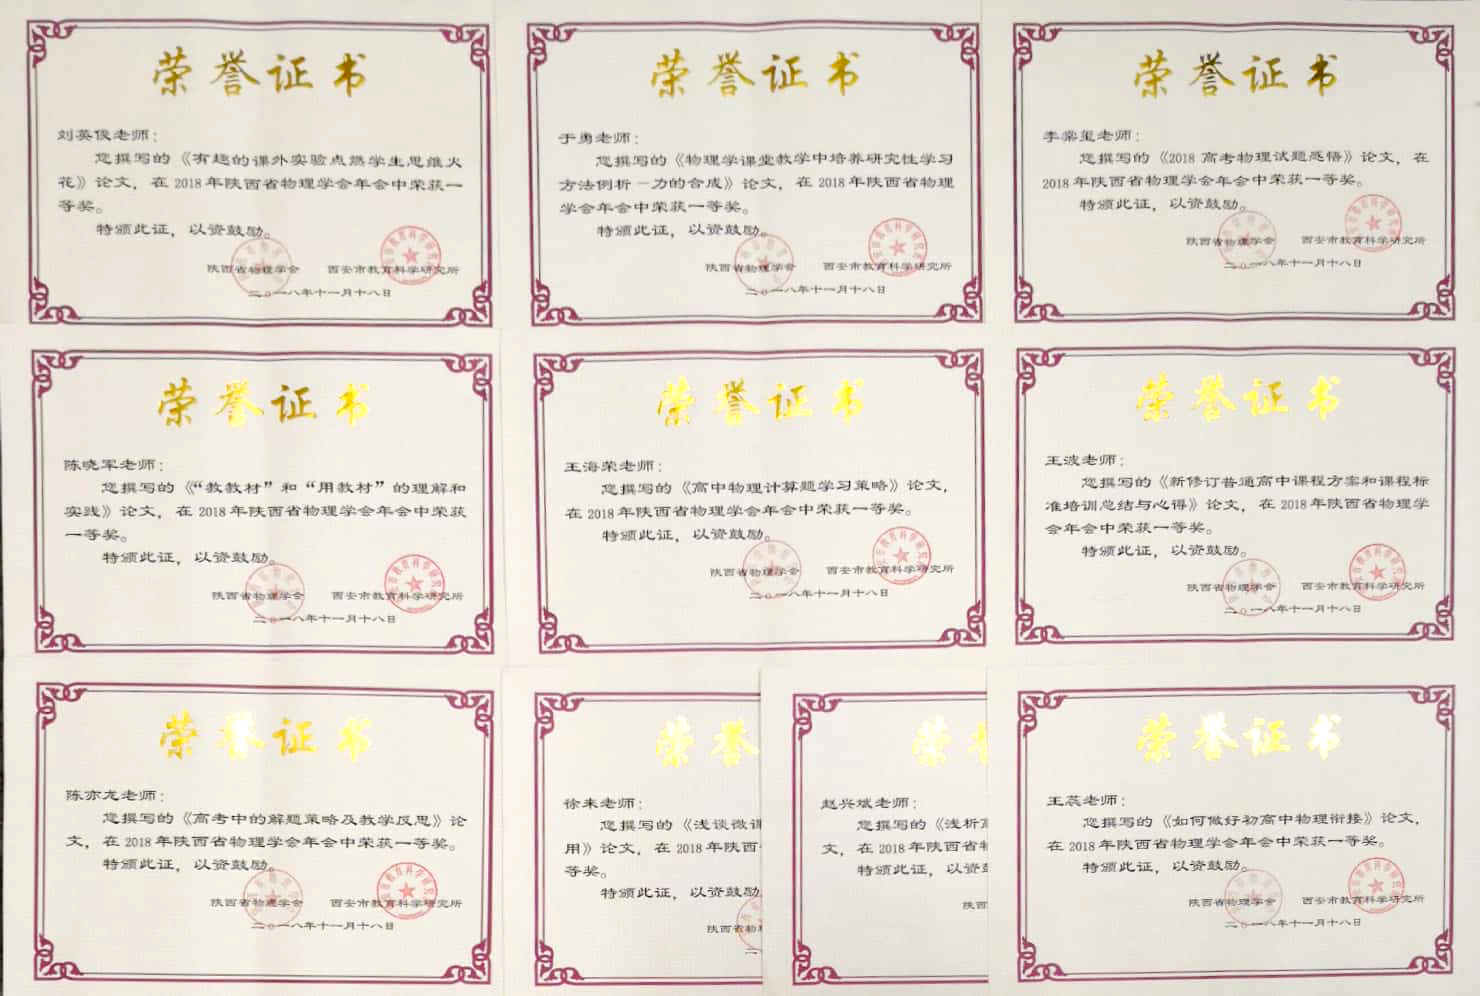 荣誉证书
刘英俊老师：
您撰写的《有趣的课外实验点燃学生思维火
花》论文，在2018年陕西省物理学会年会中荣获一
等奖。
特颁此证，以资鼓励。
陕西省物理学会 西安市教育科学研究所
二〇一八年十一月十八日
荣誉证书
于勇老师：
您撰写的《物理学课堂教学中培养研究性学习
方法例析一力的合成》论文，在2018年陕西省物理
学会年会中荣获一等奖。
特颁此证，以资鼓励。
陕西省物理学会 西安市教育科学研究所
二〇一八年十一月十八日
荣誉证书
李棠玺老师：
您撰写的《2018高考物理试题感悟》论文，在
2018年陕西省物理学会年会中荣获一等奖。
特颁此证，以资鼓励。
陕西省物理学会 西安市教育科学研究所
二〇一八年十一月十八日
荣誉证书
陈晓军老师：
您撰写的《“教教材”和“用教材”的理解和
实践》论文，在2018年陕西省物理学会年会中荣获
一等奖。
特颁此证，以资鼓励。
陕西省物理学会 西安市教育科学研究所
二〇一八年十一月十八日
荣誉证书
王海荣老师：
您撰写的《高中物理计算题学习策略》论文，
在2018年陕西省物理学会年会中荣获一等奖。
特颁此证，以资鼓励。
陕西省物理学会 西安市教育科学研究所
二〇一八年十一月十八日
荣誉证书
王波老师：
您撰写的《新修订普通高中课程方案和课程标
准培训总结与心得》论文，在2018年陕西省物理学
会年会中荣获一等奖。
特颁此证，以资鼓励。
陕西省物理学会 西安市教育科学研究所
二〇一八年十一月十八日
荣誉证书
陈亦龙老师：
您撰写的《高考中的解题策略及教学反思》论
文，在2018年陕西省物理学会年会中荣获一等奖。
特颁此证，以资鼓励。
陕西省物理学会 西安市教育科学研究所
二〇一八年十一月十八日
荣誉
徐来老师：
您撰写的《浅谈微课
用》论文，在2018年陕西
等奖。
特颁此证，以资鼓励
陕西省物
荣
赵兴斌老师：
您撰写的《浅析
文，在2018年陕西省物
特颁此证，以资
陕西
荣誉证书
王蕊老师：
您撰写的《如何做好初高中物理衔接》论文，
在2018年陕西省物理学会年会中荣获一等奖。
特颁此证，以资鼓励。
陕西省物理学会 西安市教育科学研究所
二〇一八年十一月十八日